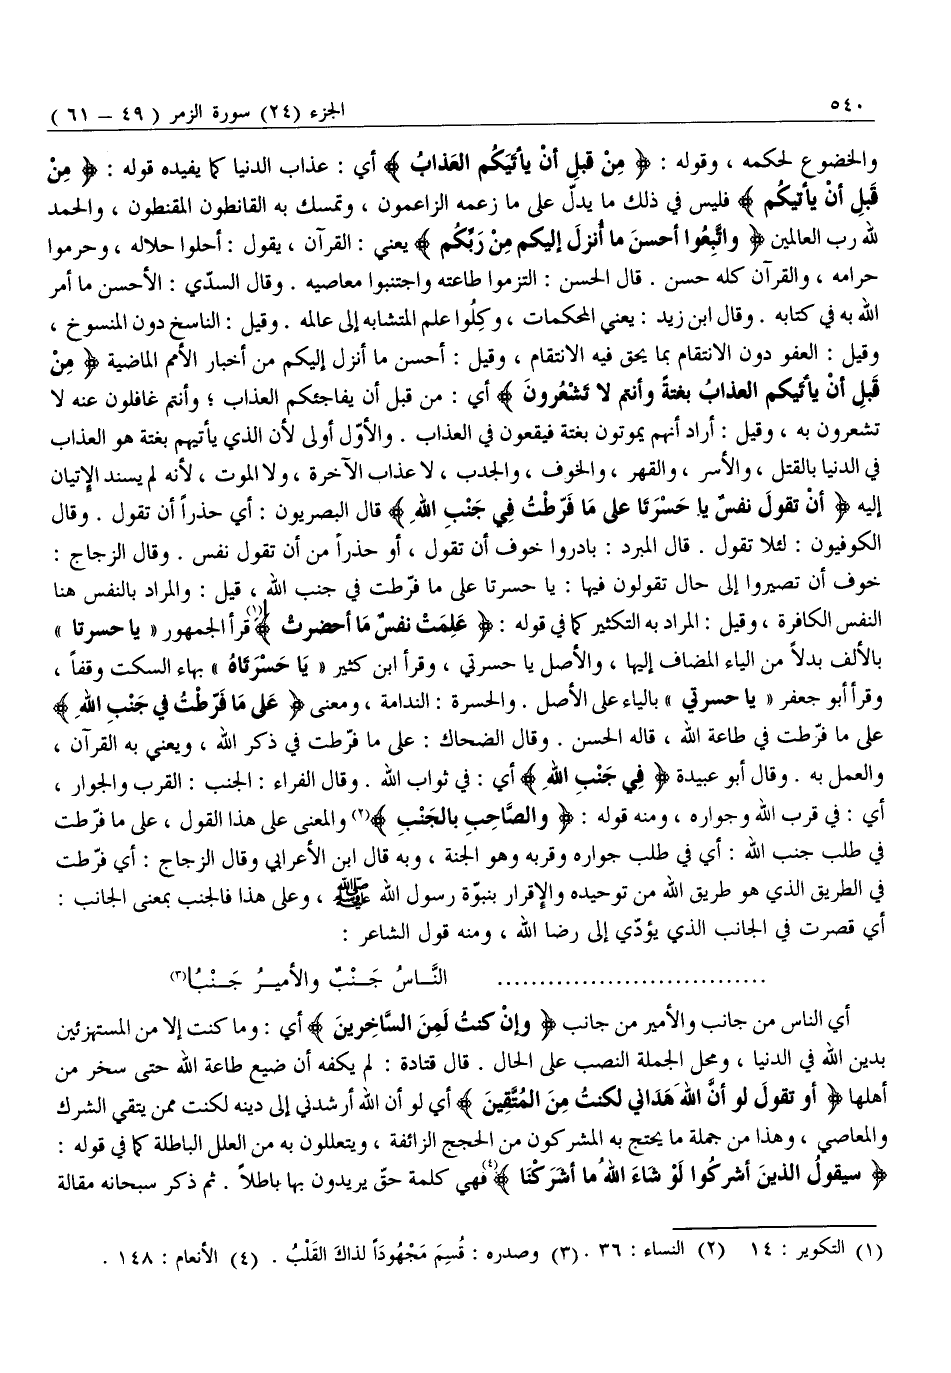 ٥٤٠
الجزء (٢٤) سورة الزمر ( ٤٩ – ٦١ )
والخضوع لحكمه ، وقوله : ﴿ مِنْ قبلِ أنْ يأتيَكُم العَذابُ ﴾ أي : عذاب الدنيا كما يفيده قوله : ﴿ مِنْ
قَبلِ أنْ يأتيكُم ﴾ فليس في ذلك ما يدلّ على ما زعمه الزاعمون ، وتمسك به القانطون المقنطون ، والحمد
لله رب العالمين ﴿ واتَّبِعُوا أحسنَ ما أُنزلَ إليكم مِنْ رَبِّكُم ﴾ يعني : القرآن ، يقول : أحلوا حلاله ، وحرموا
حرامه ، والقرآن كله حسن . قال الحسن : التزموا طاعته واجتنبوا معاصيه . وقال السدّي : الأحسن ما أمر
الله به في كتابه . وقال ابن زيد : يعني المحكمات ، وكِلُوا علم المتشابه إلى عالمه . وقيل : الناسخ دون المنسوخ ،
وقيل : العفو دون الانتقام بما يحق فيه الانتقام ، وقيل : أحسن ما أنزل إليكم من أخبار الأمم الماضية ﴿ مِنْ
قَبلِ أنْ يأتيكم العذابُ بغتةً وأنتم لا تَشْعُرونَ ﴾ أي : من قبل أن يفاجئكم العذاب ؛ وأنتم غافلون عنه لا
تشعرون به ، وقيل : أراد أنهم يموتون بغتة فيقعون في العذاب . والأوّل أولى لأن الذي يأتيهم بغتة هو العذاب
في الدنيا بالقتل ، والأسر ، والقهر ، والخوف ، والجدب ، لا عذاب الآخرة ، ولا الموت ، لأنه لم يسند الإتيان
إليه ﴿ أنْ تقولَ نفسٌ يا حَسْرَتَا على مَا فَرّطْتُ فِي جَنْبِ اللهِ ﴾ قال البصريون : أي حذراً أن تقول . وقال
الكوفيون : لئلا تقول . قال المبرد : بادروا خوف أن تقول ، أو حذراً من أن تقول نفس . وقال الزجاج :
خوف أن تصيروا إلى حال تقولون فيها : يا حسرتا على ما فرّطت في جنب الله ، قيل : والمراد بالنفس هنا
النفس الكافرة ، وقيل : المراد به التكثير كما في قوله : ﴿ عَلِمَتْ نفسٌ مَا أحضرتْ ﴾(١) قرأ الجمهور « يا حسرتا »
بالألف بدلاً من الياء المضاف إليها ، والأصل يا حسرتي ، وقرأ ابن كثير « يَا حَسْرَتَاهْ » بهاء السكت وقفاً ،
وقرأ أبو جعفر « يا حسرتي » بالياء على الأصل . والحسرة : الندامة ، ومعنى ﴿ عَلى مَا فَرّطْتُ في جَنْبِ اللهِ ﴾
على ما فرّطت في طاعة الله ، قاله الحسن . وقال الضحاك : على ما فرّطت في ذكر الله ، ويعني به القرآن ،
والعمل به . وقال أبو عبيدة ﴿ فِي جَنْبِ اللهِ ﴾ أي : في ثواب الله . وقال الفراء : الجنب : القرب والجوار ،
أي : في قرب الله وجواره ، ومنه قوله : ﴿ والصَّاحِبِ بالجَنْبِ ﴾(٢) والمعنى على هذا القول ، على ما فرّطت
في طلب جنب الله : أي في طلب جواره وقربه وهو الجنة ، وبه قال ابن الأعرابي وقال الزجاج : أي فرّطت
في الطريق الذي هو طريق الله من توحيده والإقرار بنبوّة رسول الله ﷺ ، وعلى هذا فالجنب بمعنى الجانب :
أي قصرت في الجانب الذي يؤدّي إلى رضا الله ، ومنه قول الشاعر :
............................... النَّـاسُ جَـنْبٌ والأميـرُ جَـنْبُـا(٣)
أي الناس من جانب والأمير من جانب ﴿ وإنْ كنتُ لَمِنَ السَّاخِرينَ ﴾ أي : وما كنت إلا من المستهزئين
بدين الله في الدنيا ، ومحل الجملة النصب على الحال . قال قتادة : لم يكفه أن ضيع طاعة الله حتى سخر من
أهلها ﴿ أو تقولَ لو أنَّ اللهَ هَدَاني لكنتُ مِنَ المُتَّقِينَ ﴾ أي لو أن الله أرشدني إلى دينه لكنت ممن يتقي الشرك
والمعاصي ، وهذا من جملة ما يحتج به المشركون من الحجج الزائفة ، ويتعللون به من العلل الباطلة كما في قوله :
﴿ سيقولُ الذينَ أشركُوا لَوْ شاءَ اللهُ ما أشرَكْنَا ﴾(٤) فهي كلمة حقّ يريدون بها باطلاً . ثم ذكر سبحانه مقالة
(١) التكوير : ١٤ (٢) النساء : ٣٦ . (٣) وصدره : قُسِمَ مَجْهُودَاً لذاكَ القَلْبُ . (٤) الأنعام : ١٤٨ .